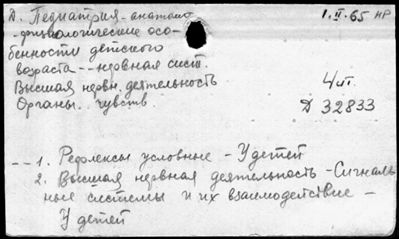 Д. Педиатрия - анатомо
-физиологические осо-
бенности детского
возраста -- нервная сист.
Высшая нервн. деятельность
Органы.. чувств.
1.II.65 НР
4 л.
Д 32833
-- 1. Рефлексы условные - У детей
2. Высшая нервная деятельность - Сигналь
ные системы и их взаимодействие -
У детей